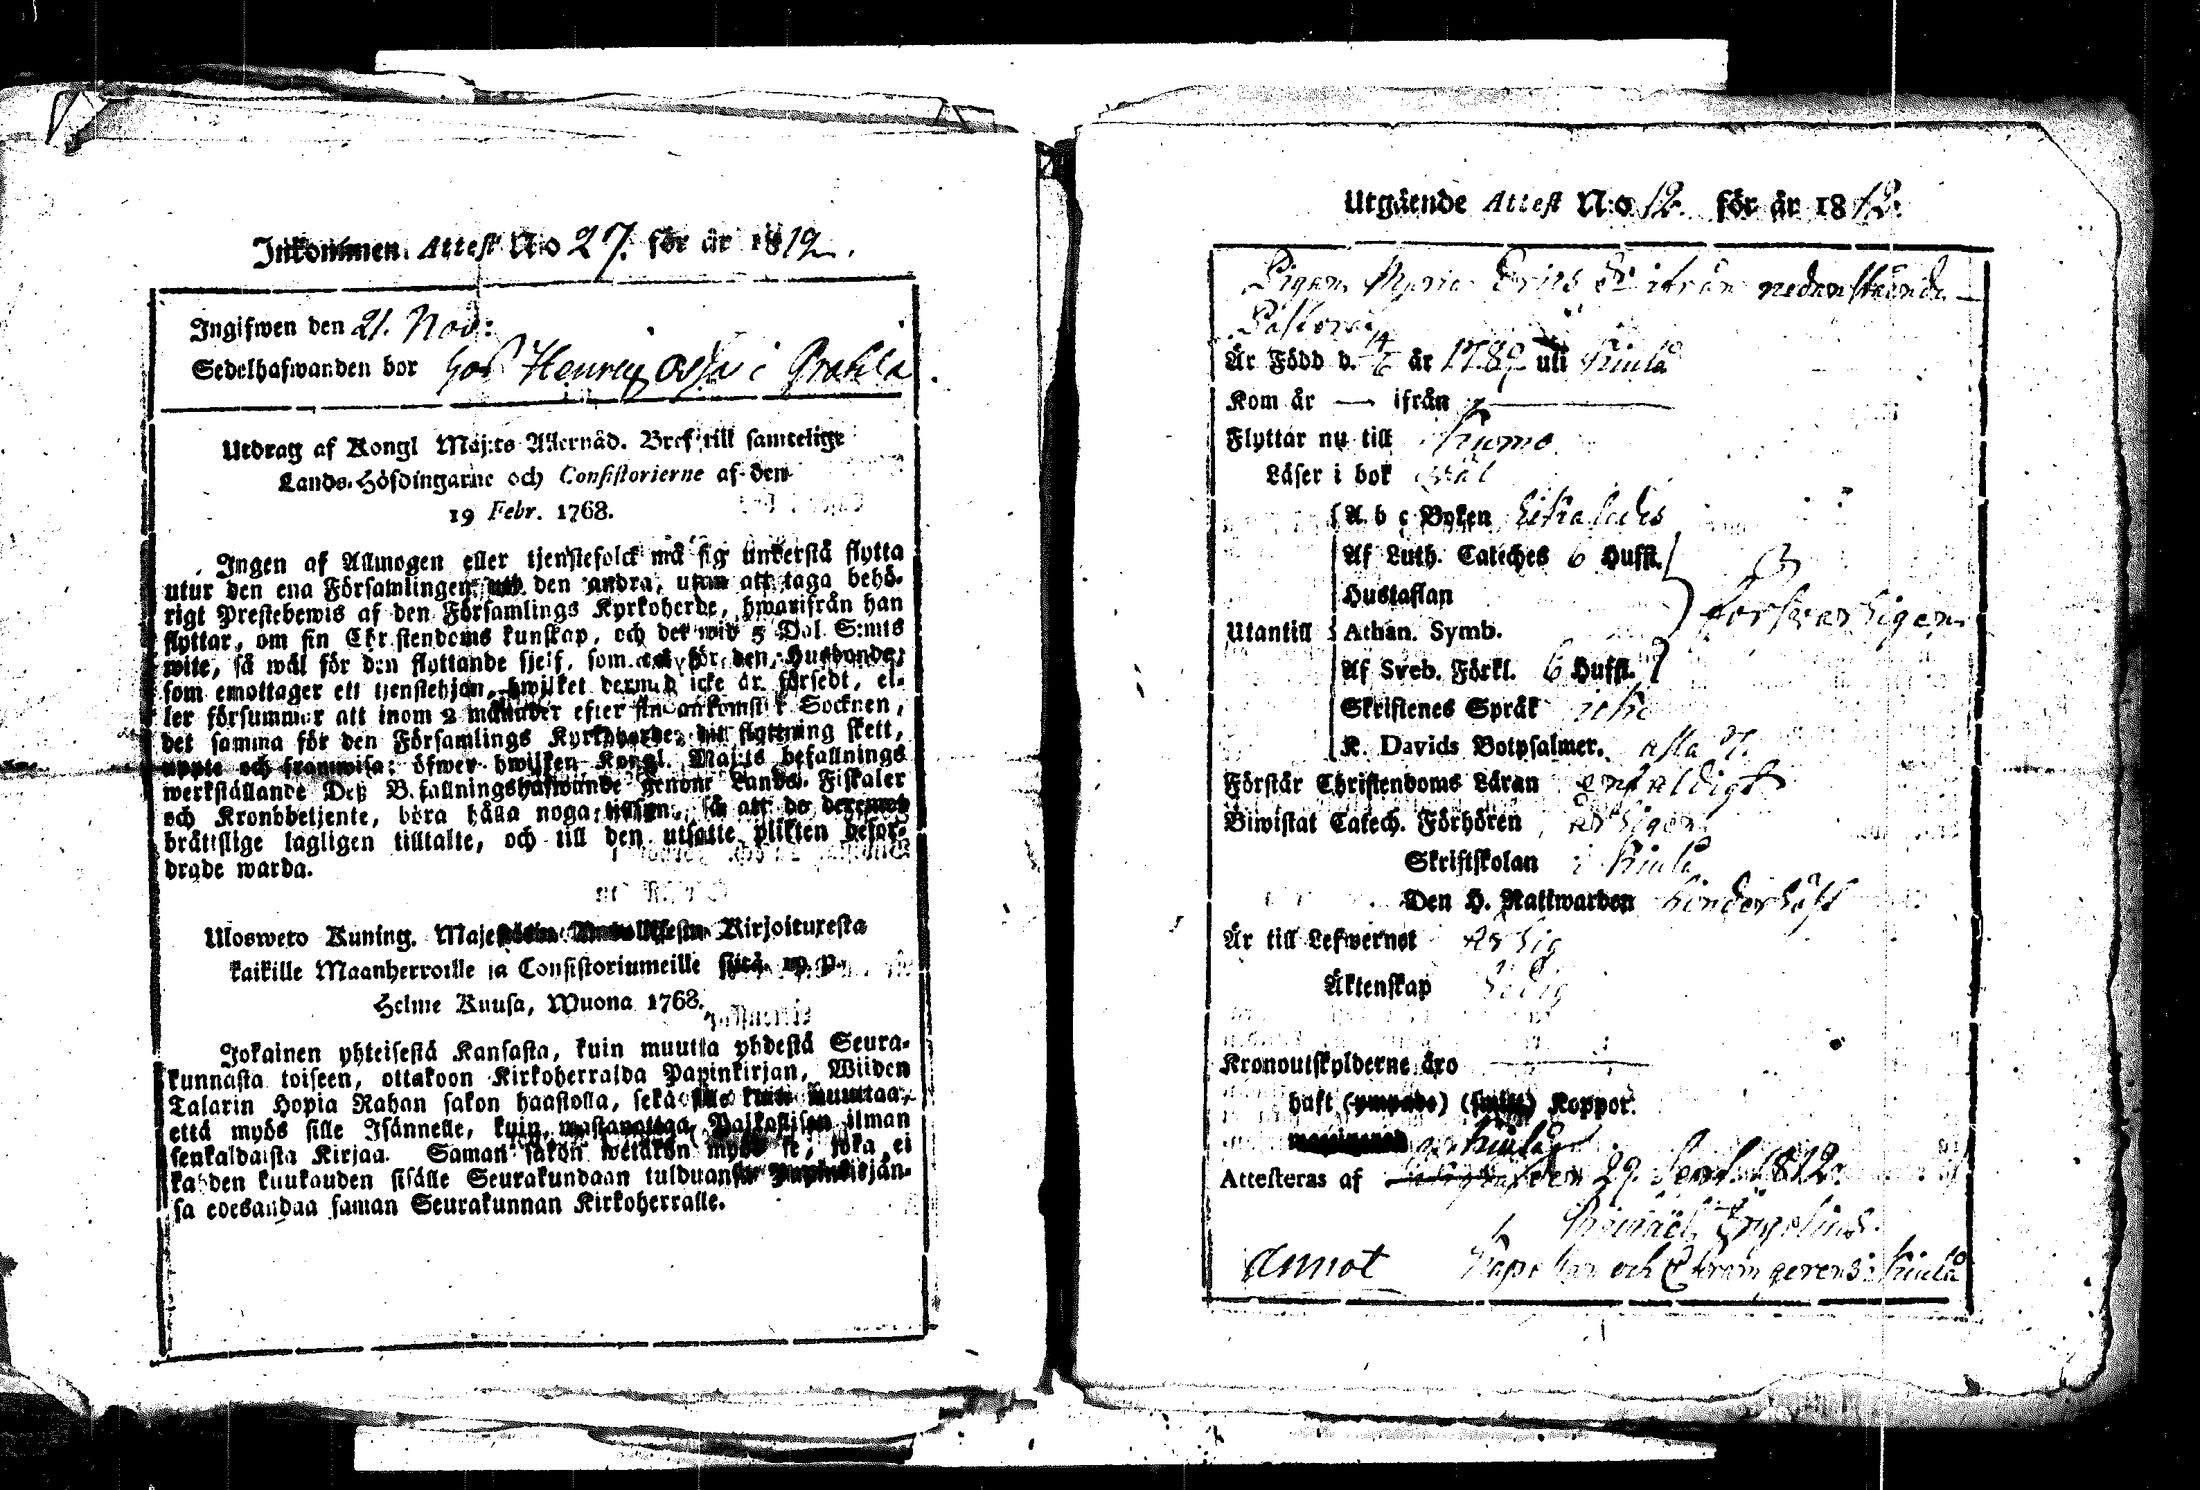 Inkommen Attest No 27. för år 1812.
Ingifwen den 21. Nov:
Sedelhafwanden bor hos Henric i
Utdrag af Kongl Maj:ts Allernåd. Bref till samtelige
Lands-Höfdingarne och Consistorierne af den
19 Febr. 1768.
Ingen af Allmogen eller tjenstefolck må sig understå flytta
utur den ena Församlingen den andra, utan att taga behö-
rigt Prestebewis af den Församlings Kyrkoherde, hwarifrån han
flyttar, om sin Christendoms kunskap, och det wid 5 Dal S:mts
wite, så wäl för den flyttande sjelf, som för den Husbonde,
som emottager ett tjenstehjon, hwilket dermed icke är försedt, el-
ler försummar att inom 2 månader efter sin ankomst i Socknen,
det samma för den Församlings Kyrkoherde, dit flyttning skett,
uppte och framwisa; öfwer hwilken Kongl. Maj:ts befallnings
werkställande Deß Befallningshafwande genom Lands-Fiskaler
och Kronobetjente, böra hålla noga tillsyn, så att de deremot
brättslige lagligen tilltalte, och till den utsatte plikten befor-
drade warda.
Ulosweto Kuning. Kirjoituxesta
kaikille Maanherroille ja Consistoriumeille siitä 19 p.
Helme Kuusa, Wuona 1768.
Jokainen yhteisestä Kansasta, kuin muutta yhdestä Seura-
kunnasta toiseen, ottakoon Kirkoherralda Papinkirjan, Wiiden
Talarin Hopia Rahan sakon haastolla, sekä kuin muuttaa,
että myös sille Isännelle, kuin ilman
senkaldaista Kirjaa. Saman sakon wetäkön myös se, joka ei
kahden kuukauden sisälle Seurakundaan tulduansa Papinkirjän-
sa edesandaa saman Seurakunnan Kirkoherralle.
Utgående Attest N:o 12. för år 1812.
Pigan Maria Erics dr ifrån nedanstående
Är Född d. 14/6 år 178 uti Kiulo
Kom år — ifrån —
Flyttar nu till Kumo
Läser i bok wäl
A b c Boken
Af Luth. Catëches 6 Hufst.
Hustaflan försvarligen
Utantill Athan. Symb.
Af Sveb. Förkl. 6 Hufst.
Skriftenes Språk icke
K. Davids Botpsalmer. alla 7.
Förstår Christendoms Läran enfaldigt
Biwistat Catech. Förhören årligen
Skriftskolan i Kiulo
Den H. Nattwarden
Är till Lefwernet ärlig
Äktenskap ledig
Kronoutskylderne äro —
haft Koppor.
Kiulo
Attesteras af den 29. Sept. 1812.
Annot Capellan och i Kiulo